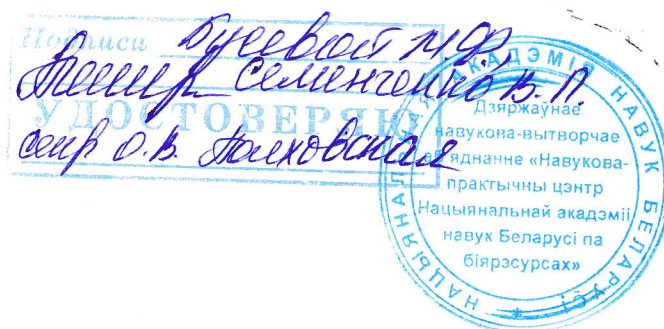 Подписи
Семенченко В.П.
УДОСТОВЕРЯЮ
секр О.В.
НАЦЫЯНАЛЬНАЯ АКАДЭМІЯ НАВУК БЕЛАРУСІ
Дзяржаўнае
навукова-вытворчае
аб'яднанне «Навукова-
практычны цэнтр
Нацыянальнай акадэміі
навук Беларусі па
біярэсурсах»